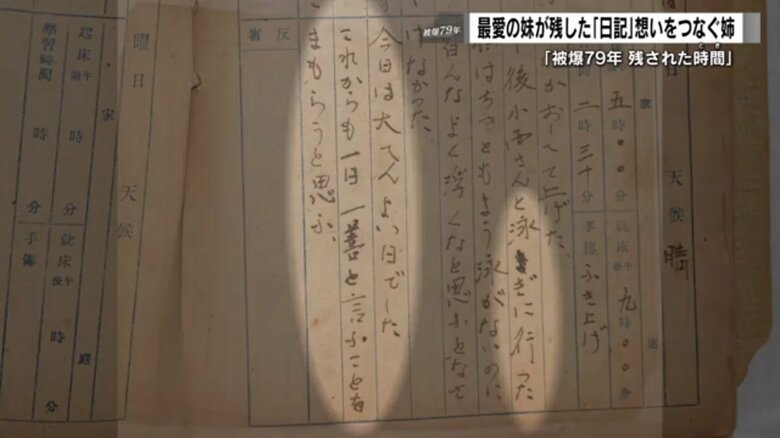 被爆79年
最愛の妹が残した「日記」想いをつなぐ姉
「被爆79年 残された時間」
とき
天候 晴
家庭
五時〇〇分 就床午後九時〇〇分
二時三十分 手傳 ふき上げ
かおしてて上げた。
後小西さんと泳ぎに行った
はちさともよう泳がないのに
なよく浮くなと思ふとなせ
けなかった。
反省
今日は大てんよい日でした
これからも一日一善と言ふことを
まもらうと思ふ、
曜日 天候
家庭
起床午前 時 分 就床午後 時 分
學習時間 時 分 手傳